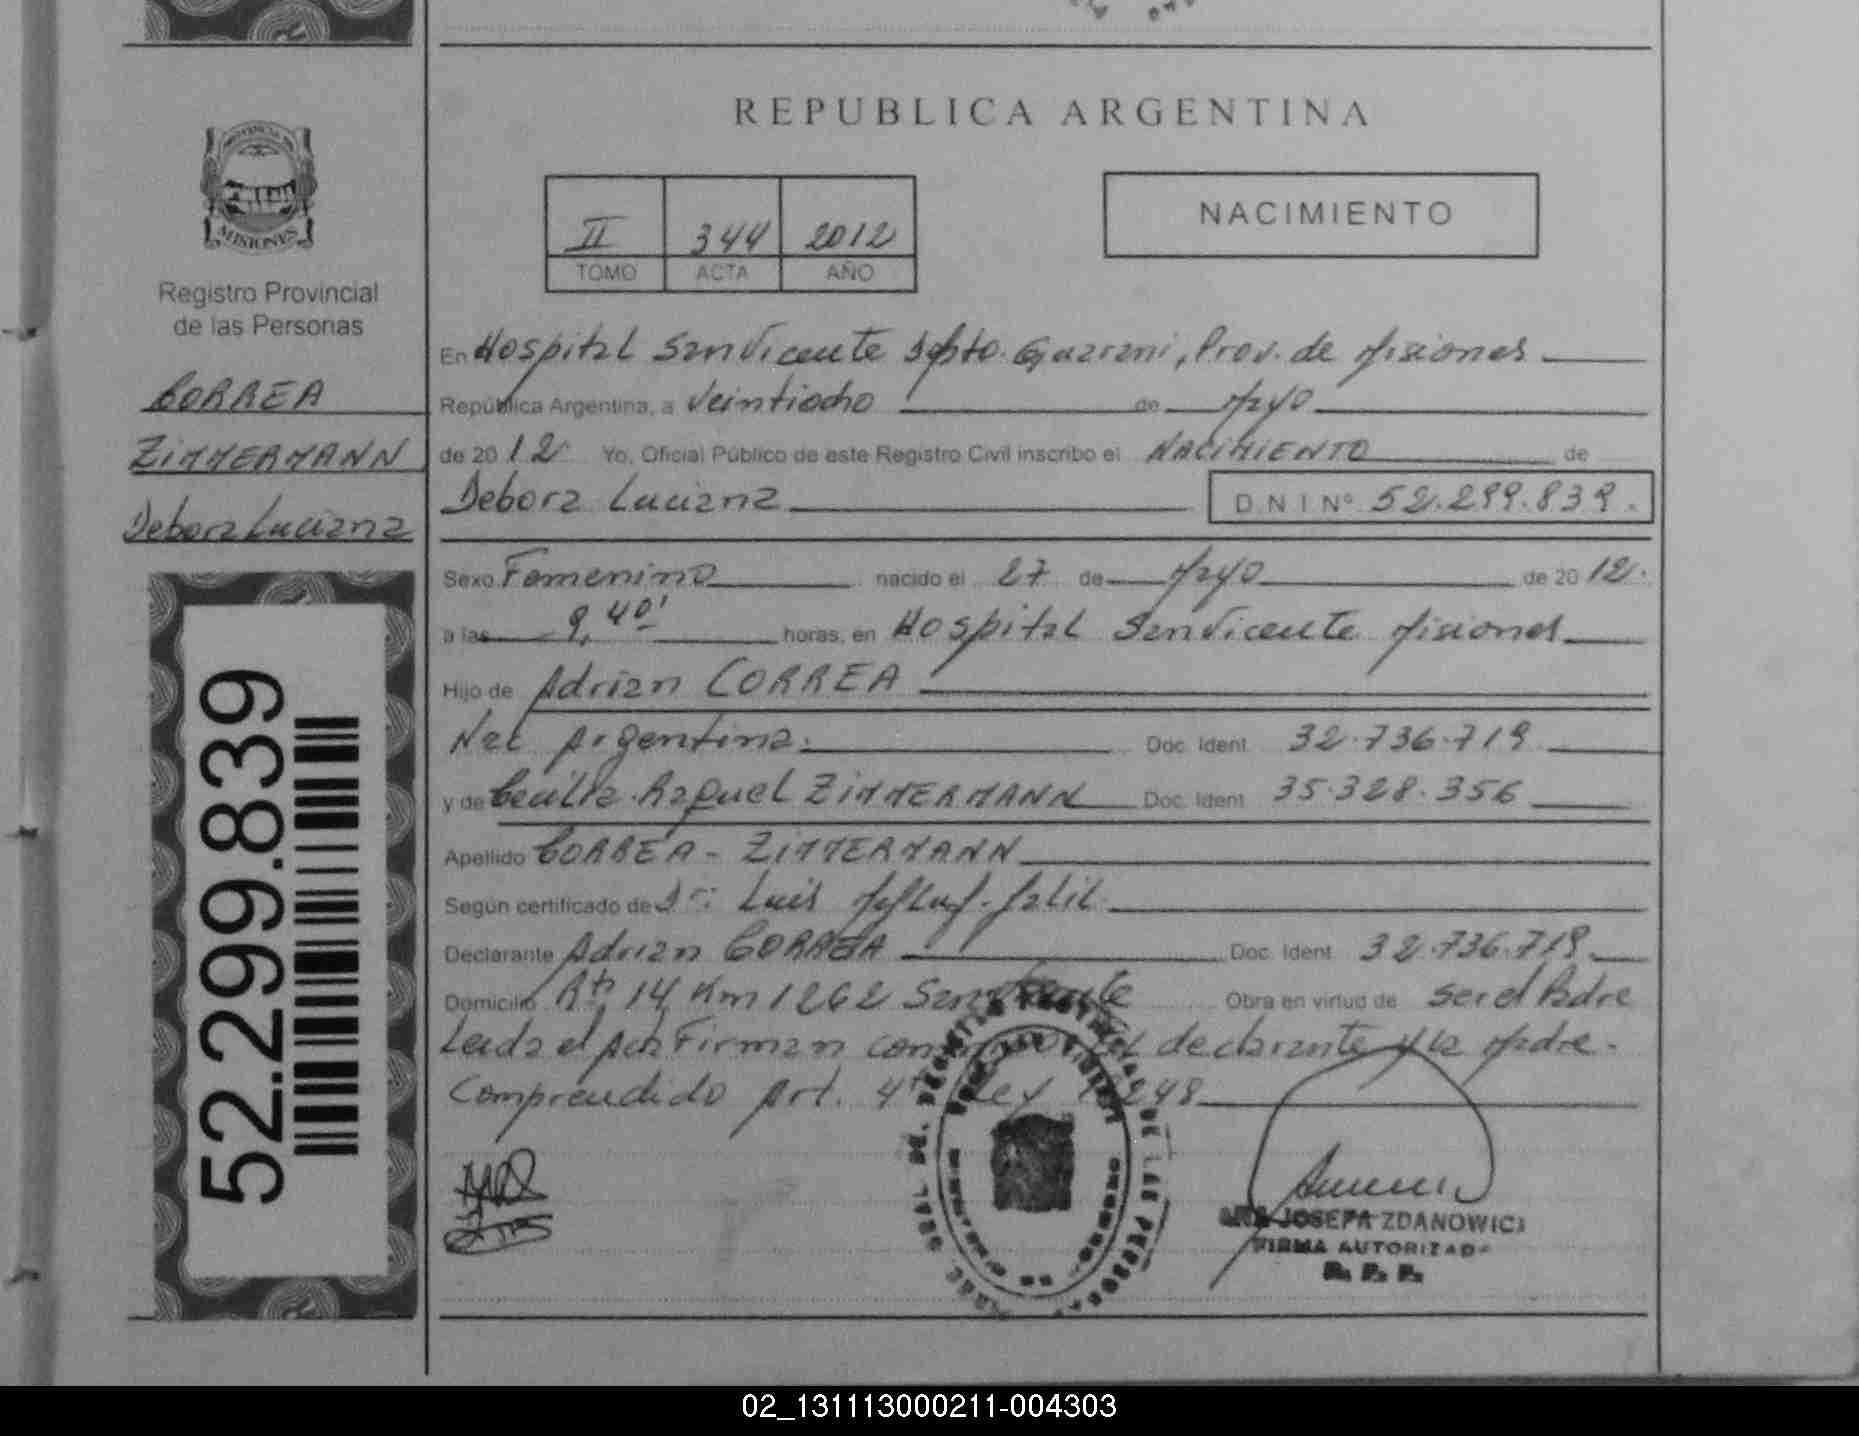 REPUBLICA ARGENTINA
II 344 2012
TOMO ACTA AÑO
NACIMIENTO
PROVINCIA DE
MISIONES
Registro Provincial
de las Personas
CORREA
ZIMMERMANN
Debora Luciana
52.299.839
En Hospital San Vicente Dpto. Guarani, Prov. de Misiones
República Argentina, a Veintiocho de Mayo
de 2012 Yo, Oficial Público de este Registro Civil inscribo el NACIMIENTO de
Debora Luciana D.N.I Nº 52.299.839.
Sexo Femenino nacido el 27 de Mayo de 2012.
a las 9,40' horas, en Hospital San Vicente Misiones
Hijo de Adrian CORREA
Nac Argentina. Doc. Ident. 32.736.719
y de Cecilia Raquel ZIMMERMANN Doc. Ident. 35.328.356
Apellido CORREA - ZIMMERMANN
Según certificado de Dr: Luis Jalil.
Declarante Adrian CORREA Doc. Ident. 32.736.719
Domicilio Rta 14 Km 1262 San Vicente Obra en virtud de ser el Padre
Leida el Acta Firman declarante y la Madre.
Comprendido Art. 4to Ley
JOSEFA ZDANOWICZ
FIRMA AUTORIZADA
R. P. P.
02_131113000211-004303